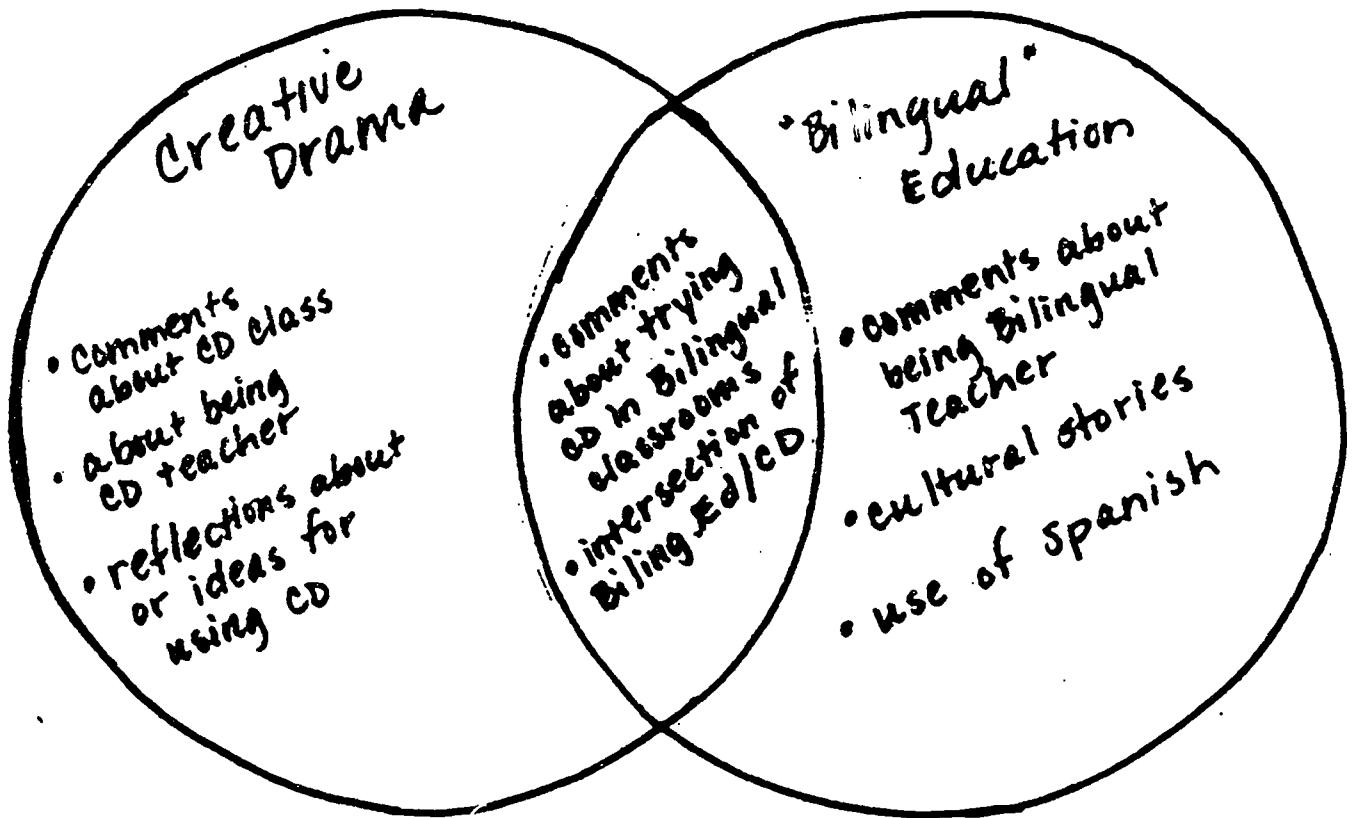 Creative
Drama
• comments
about CD class
• about being
CD teacher
• reflections about
or ideas for
using CD
• comments
about trying
CD in Bilingual
classrooms
• intersection of
Biling.Ed/CD
"Bilingual"
Education
• comments about
being Bilingual
Teacher
• cultural stories
• use of Spanish